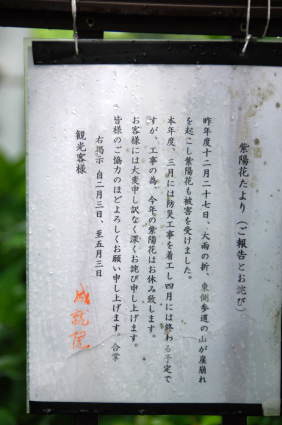 紫陽花たより（ご報告とお詫び）
昨年度十二月二十七日、大雨の折、東側参道の山が崖崩れ
を起こし紫陽花も被害を受けました。
本年度、三月には防災工事を着工し四月には終わる予定で
すが、工事の為、今年の紫陽花はお休み致します。
お客様には大変申し訳なく深くお詫び申し上げます。
皆様のご協力のほどよろしくお願い申し上げます。合掌
右掲示 自二月三日、至五月三日
観光客様
成就院